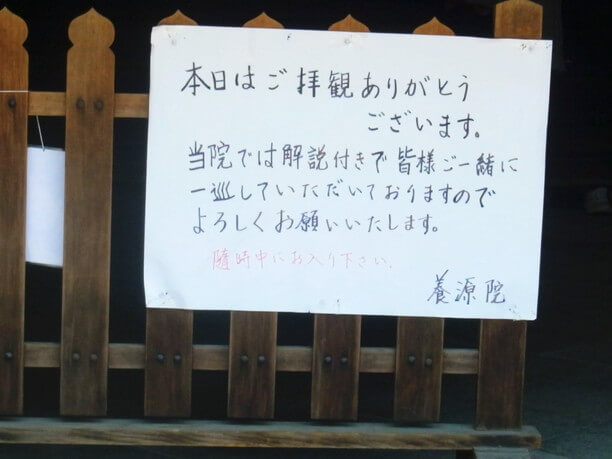 本日はご拝観ありがとう
ございます。
当院では解説付きで皆様ご一緒に
一巡していただいておりますので
よろしくお願いいたします。
随時中にお入り下さい.
養源院